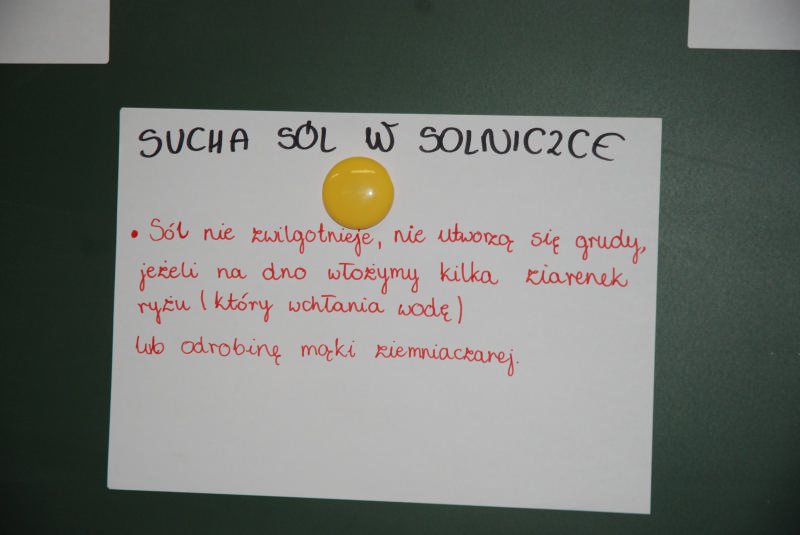 SUCHA SÓL W SOLNICZCE
• Sól nie zwilgotnieje, nie utworzą się grudy,
jeżeli na dno włożymy kilka ziarenek
ryżu (który wchłania wodę)
lub odrobinę mąki ziemniaczanej.